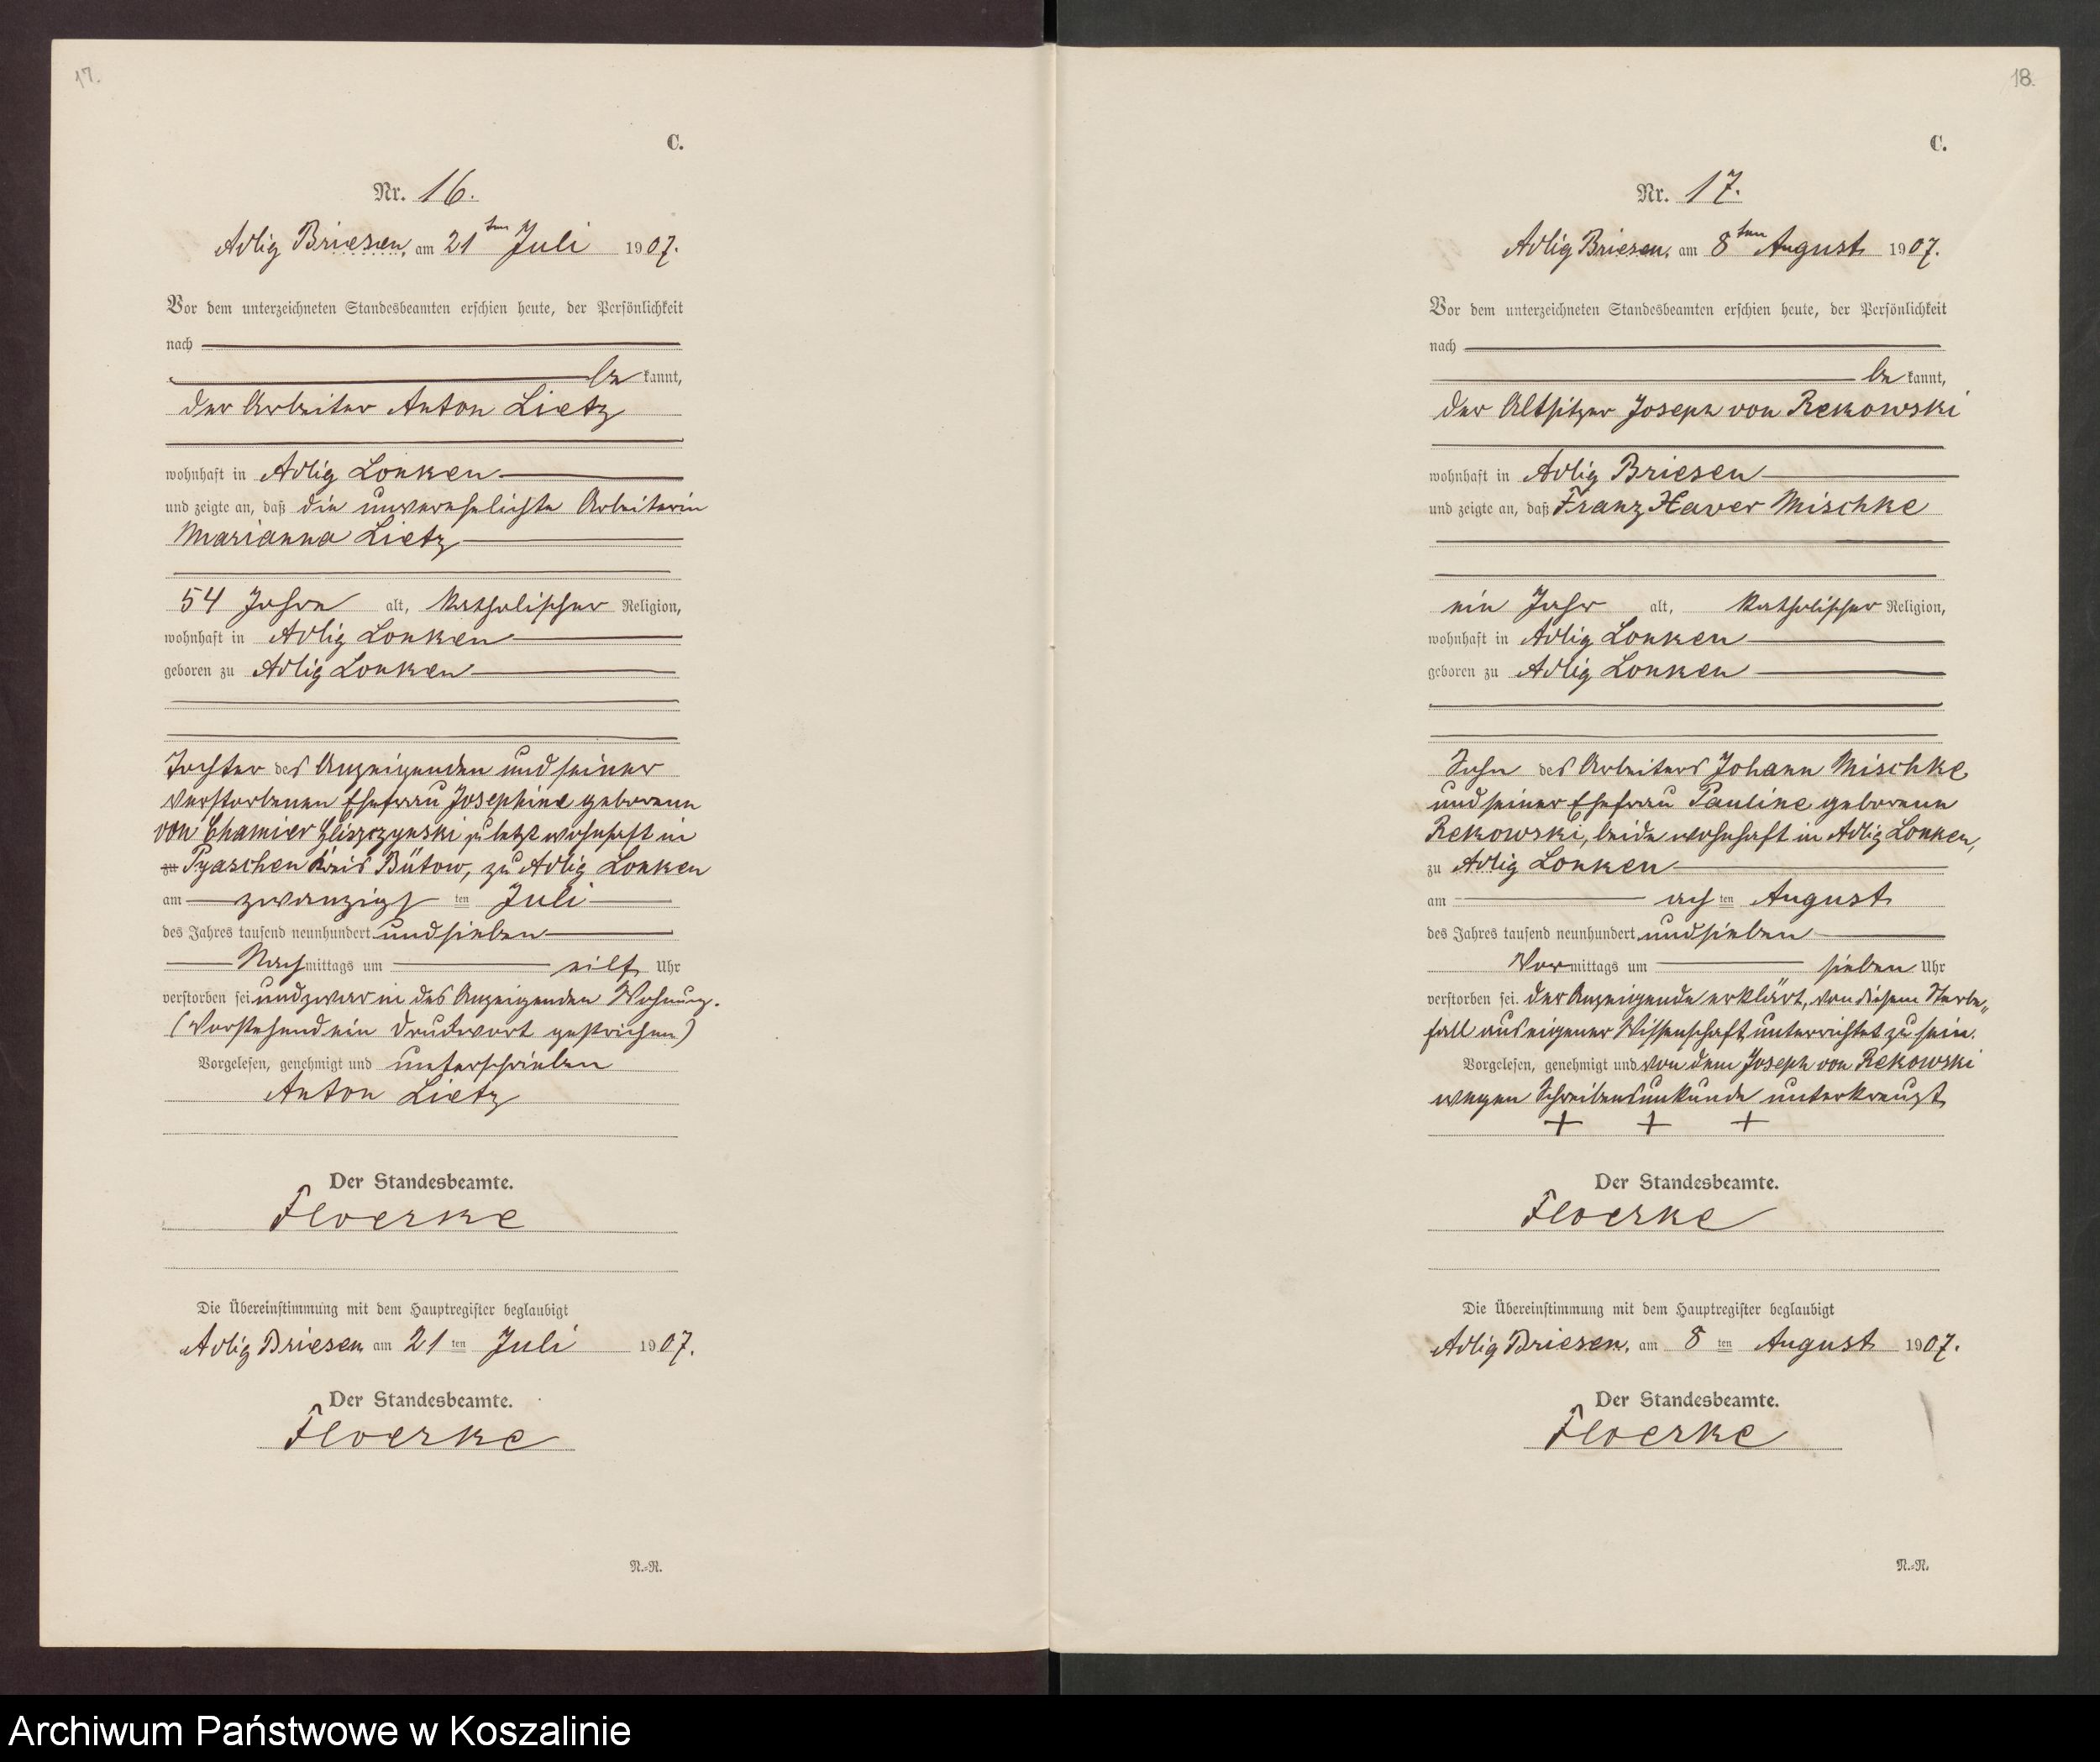 17.
C.
Nr. 16.
Adlig Briesen, am 21ten Juli 1907.
Vor dem unterzeichneten Standesbeamten erschien heute, der Persönlichkeit
nach
be kannt,
der Arbeiter Anton Lietz
wohnhaft in Adlig Lonken
und zeigte an, daß die unverehelichte Arbeiterin
Marianna Lietz
54 Jahre alt, katholischer Religion,
wohnhaft in Adlig Lonken
geboren zu Adlig Lonken
Tochter des Anzeigenden und seiner
verstorbenen Ehefrau Josephine geborene
von Chamier Gliszczynski zuletzt wohnhaft in
zu Pyaschen Kreis Bütow, zu Adlig Lonken
am zwanzigsten Juli
des Jahres tausend neunhundert und sieben
Nachmittags um eilf Uhr
verstorben sei und zwar in des Anzeigenden Wohnung.
(Vorstehend ein Druckwort gestrichen)
Vorgelesen, genehmigt und unterschrieben
Anton Lietz
Der Standesbeamte.
Floerke
Die Übereinstimmung mit dem Hauptregister beglaubigt
Adlig Briesen am 21ten Juli 1907.
Der Standesbeamte.
Floerke
N.=R.
18.
C.
Nr. 17.
Adlig Briesen, am 8ten August 1907.
Vor dem unterzeichneten Standesbeamten erschien heute, der Persönlichkeit
nach
be kannt,
der Altsitzer Joseph von Rekowski
wohnhaft in Adlig Briesen
und zeigte an, daß Franz Xaver Mischke
ein Jahr alt, katholischer Religion,
wohnhaft in Adlig Lonken
geboren zu Adlig Lonken
Sohn des Arbeiters Johann Mischke
und seiner Ehefrau Pauline geborene
Rekowski, beide wohnhaft in Adlig Lonken,
zu Adlig Lonken
am achten August
des Jahres tausend neunhundert und sieben
Vormittags um sieben Uhr
verstorben sei. Der Anzeigende erklärt, von diesem Sterbe„
fall aus eigener Wissenschaft unterrichtet zu sein.
Vorgelesen, genehmigt und von dem Joseph von Rekowski
wegen Schreibensunkunde unterkreuzt
+ + +
Der Standesbeamte.
Floerke
Die Übereinstimmung mit dem Hauptregister beglaubigt
Adlig Briesen, am 8ten August 1907.
Der Standesbeamte.
Floerke
N.=R.
Archiwum Państwowe w Koszalinie